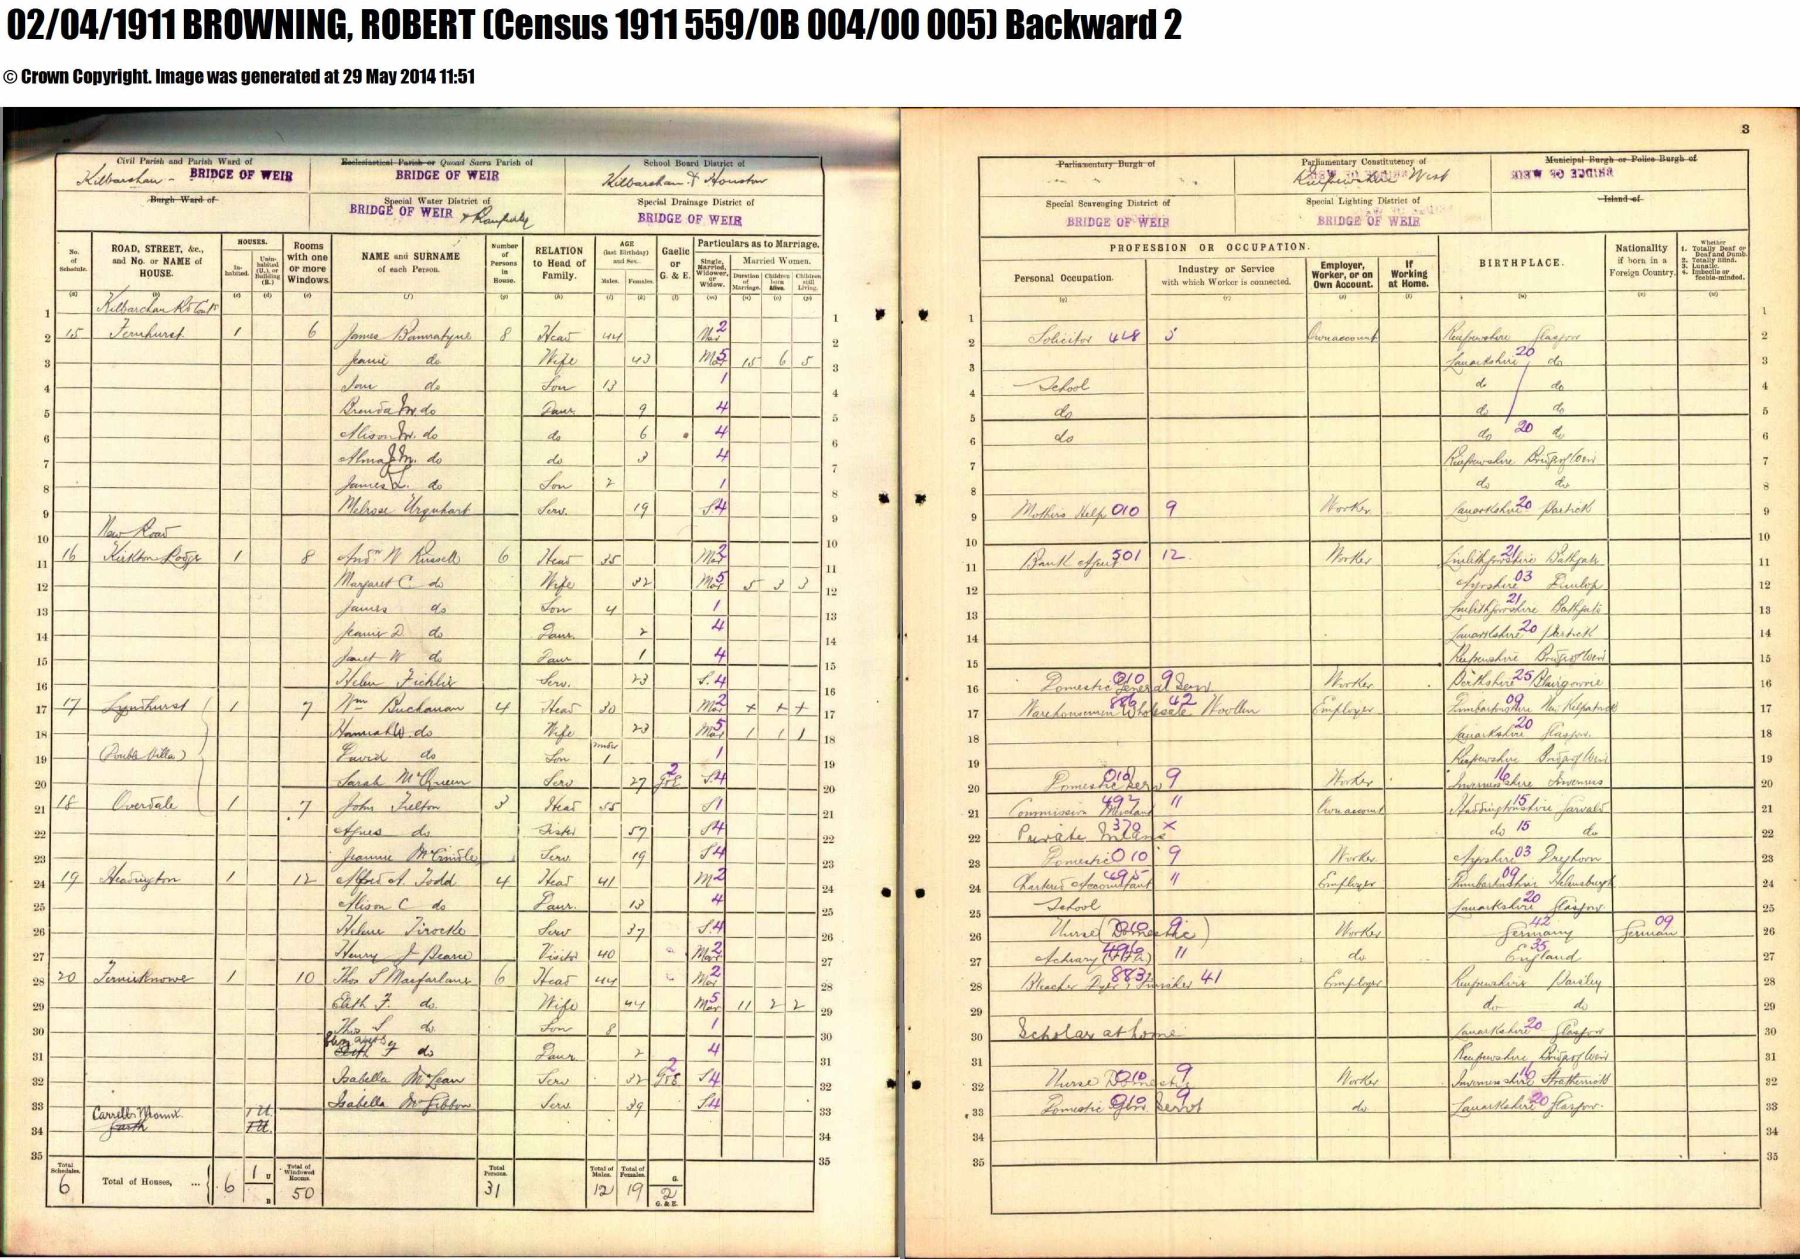 02/04/1911 BROWNING, ROBERT (Census 1911 559/0B 004/00 005) Backward 2
© Crown Copyright. Image was generated at 29 May 2014 11:51
Civil Parish and Parish Ward of
Kilbarchan - BRIDGE OF WEIR
Ecclesiastical Parish or Quoad Sacra Parish of
BRIDGE OF WEIR
School Board District of
Kilbarchan & Houston
Burgh Ward of
Special Water District of
BRIDGE OF WEIR & Ranfurly
Special Drainage District of
BRIDGE OF WEIR
No. of Schedule.
ROAD, STREET, &c., and No. or NAME of HOUSE.
HOUSES.
Inhabited.
Uninhabited (U.), or Building (B.)
Rooms with one or more Windows.
NAME and SURNAME of each Person.
Number of Persons in House.
RELATION to Head of Family.
AGE (last Birthday) and Sex.
Males. Females.
Gaelic or G. & E.
Particulars as to Marriage.
Single, Married, Widower, or Widow.
Married Women.
Duration of Marriage. Children born Alive. Children still Living.
1 Kilbarchan Rd
2 15 Fernhurst 1 6 James Bannatyne 8 Head 44 Mar 2
3 Jeanie do Wife 43 Mar 5 15 6 5
4 do Son 13 1
5 Brenda M. do Daur. 9 4
6 Alison M. do do 6 4
7 Alma do do 3 4
8 James L. do Son 2 1
9 Melrose Urquhart Serv. 19 S 4
10 New Road
11 16 Kirkton Lodge 1 8 Andw W Russell 6 Head 35 Mar 2
12 Margaret C do Wife 32 Mar 5 5 3 3
13 James do Son 4 1
14 Jeanie D do Daur. 2 4
15 Janet W do Daur 1 4
16 Helen Serv. 23 S. 4
17 17 Lyndhurst 1 7 Wm Buchanan 4 Head 30 Mar 2 x x x
18 Hannah W. do Wife 23 Mar 5 1 1 1
19 (Double Villa) David do Son under 1 1
20 Sarah McQueen Serv 27 G&E 2 S 4
21 18 Overdale 1 7 John 3 Head 55 S 1
22 Agnes do Sister 57 S 4
23 Jeannie McCrindle Serv. 19 S 4
24 19 Headington 1 12 Alfred A. Todd 4 Head 41 M 2
25 Alison C do Daur. 13 4
26 Helene Serv 37 S. 4
27 Henry J Pearce Visitor 40 Mar 2
28 20 Fernieknowe 1 10 Thos S Macfarlane 6 Head 44 Mar 2
29 Elith F. do. Wife 44 Mar 5 11 2 2
30 Thos S do. Son 8 1
31 F do Daur. 2 4
32 Isabella McLean Serv 32 G&E 2 S 4
33 Isabella McGibbon Serv. 39 S 4
34 Garth 1 U.
35
Total Schedules. 6
Total of Houses, ... 6 1 U B
Total of Windowed Rooms. 50
Total Persons. 31
Total of Males. 12
Total of Females. 19
G. 2 G. & E.
3
Parliamentary Burgh of
Parliamentary Constituency of
Renfrewshire West
Municipal Burgh or Police Burgh of
BRIDGE OF WEIR
Special Scavenging District of
BRIDGE OF WEIR
Special Lighting District of
BRIDGE OF WEIR
Island of
PROFESSION OR OCCUPATION.
Personal Occupation.
Industry or Service with which Worker is connected.
Employer, Worker, or on Own Account.
If Working at Home.
BIRTHPLACE.
Nationality if born in a Foreign Country.
Whether
1. Totally Deaf or Deaf and Dumb.
2. Totally Blind.
3. Lunatic.
4. Imbecile or feeble-minded.
1
2 Solicitor 448 5 Own account Renfrewshire Glasgow
3 Lanarkshire 20 do
4 School do do
5 do do do
6 do do 20 do
7 Renfrewshire Bridge of Weir
8 do do
9 Mothers Help 010 9 Worker Lanarkshire 20 Partick
10
11 Bank Agent 501 12 Worker Linlithgowshire 21 Bathgate
12 Ayrshire 03 Dunlop
13 Linlithgowshire 21 Bathgate
14 Lanarkshire 20 Partick
15 Renfrewshire Bridge of Weir
16 Domestic General Serv 010 9 Worker Perthshire 25 Blairgowrie
17 Warehouseman Wholesale Woollen 42 Employer Dumbartonshire 09 New Kilpatrick
18 Lanarkshire 20 Glasgow
19 Renfrewshire Bridge of Weir
20 Domestic Serv 010 9 Worker Invernessshire 16 Inverness
21 Commission Merchant 497 " Own account Haddingtonshire 15 Garvald
22 Private Means 370 x do 15 do
23 Domestic 010 9 Worker Ayrshire 03 Dreghorn
24 Chartered Accountant 495 " Employer Dumbartonshire 09 Helensburgh
25 School Lanarkshire 20 Glasgow
26 Nurse (Domestic) 010 9 Worker Germany 42 German 09
27 Actuary (F.F.A.) 496 " do England 35
28 Bleacher Dyer & Finisher 883 41 Employer Renfrewshire Paisley
29 do do
30 Scholar at home Lanarkshire 20 Glasgow
31 Renfrewshire Bridge of Weir
32 Nurse Domestic 010 9 Worker Invernessshire 16 Stratherrick
33 Domestic Genr Servt 010 9 do Lanarkshire 20 Glasgow
34
35